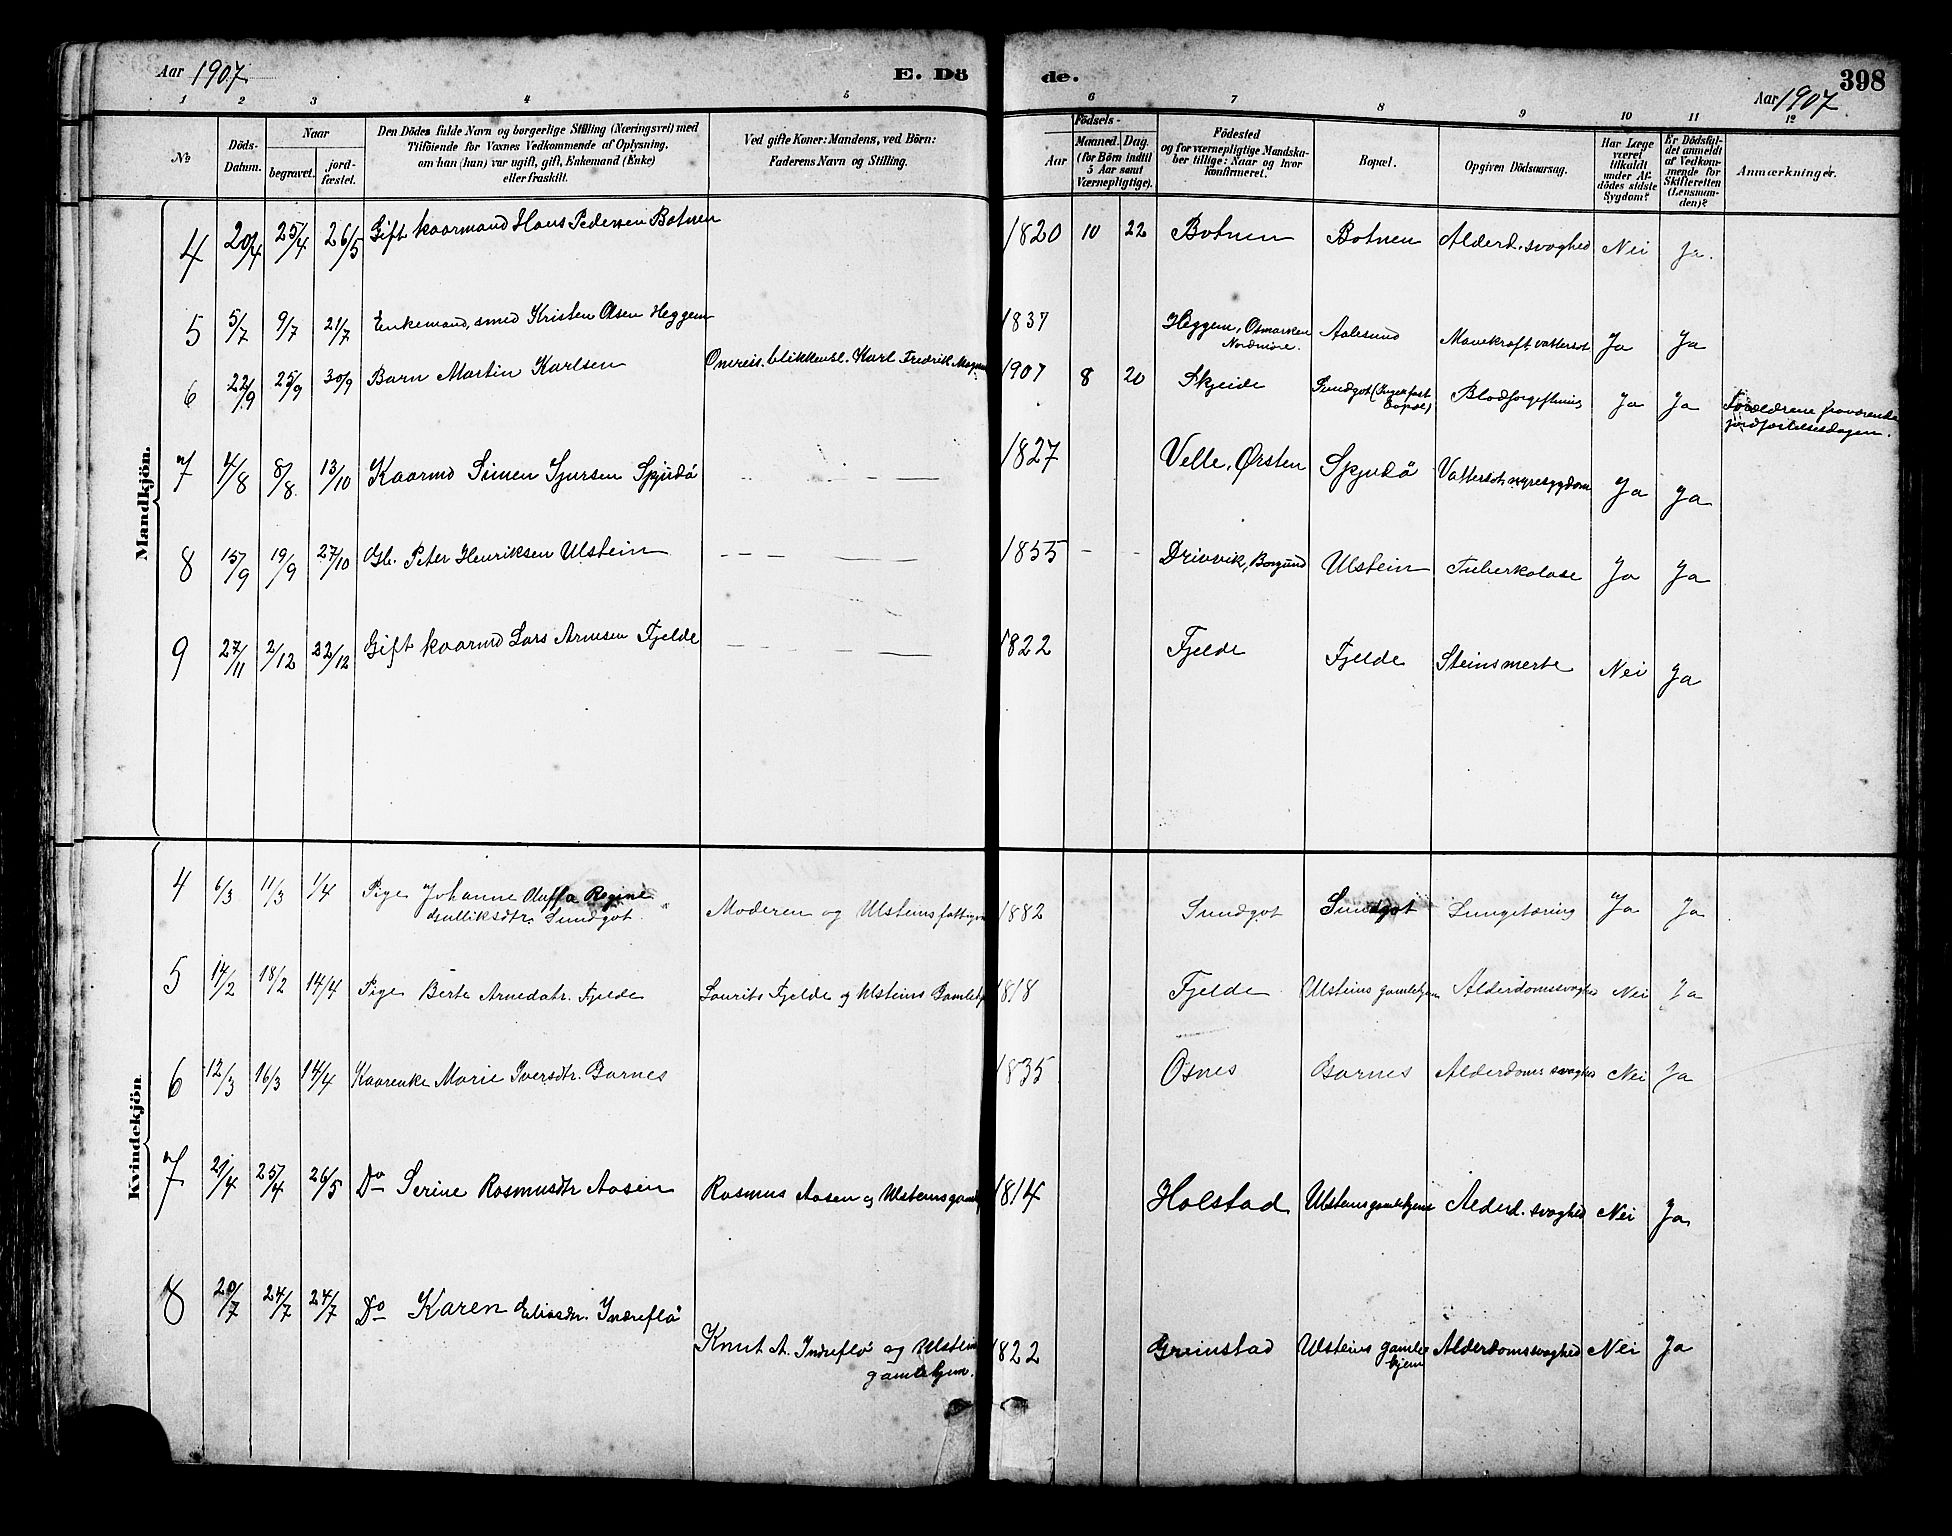 Aar 1907
E. Dö
de.
398
Aar 1907
1 2 3 4 5 6 7 8 9 10 11 12
No
Döds-Datum.
Naar
begravet.
jord-fæstet.
Den Dödes fulde Navn og borgerlige Stilling (Næringsvei) med
Tilföiende for Voxnes Vedkommende af Oplysning,
om han (hun) var ugift, gift, Enkemand (Enke)
eller fraskilt.
Ved gifte Koner: Mandens, ved Börn:
Faderens Navn og Stilling.
Födsels-
Aar
Maaned. Dag.
(for Börn indtil
5 Aar samt
Værnepligtige).
Födested
og for værnepligtige Mandska-
ber tillige: Naar og hvor
konfirmeret.
Bopæl.
Opgiven Dödsaarsag.
Har Læge
været
tilkaldt
under Af-
dödes sidste
Sygdom?
Er Dödsfal-
det anmeldt
af Vedkom-
mende for
Skifteretten
(Lensman-
den)?
Anmærkninger.
Mandkjön.
4 20/4 25/4 26/5 Gift kaarmand Hans Pedersen Botnen 1820 10 22 Botnen Botnen Alderd.svaghed Nei Ja.
5 5/7 9/7 21/7 Enkemand, smed Kristen Olsen Heggem 1837 Heggem, Osmarken Nordmöre. Aalesund Mavekræft, vattersot Ja Ja
6 22/9 25/9 30/9 Barn Martin Karlsen Omreis. blikkensl. Karl Fredrik 1907 8 20 Skjeide Sundgot (Ingen fast Bopæl) Blodforgiftning Ja Ja Forældrene fraværende
jordfæstelsesdagen.
7 4/8 8/8 13/10 Kaarmd Simen Sjursen Spjudö 1827 Velle, Ørsten Spjudö Vattersot, nyresygdom Ja Ja
8 15/9 19/9 27/10 Gb. Peter Henriksen Ulstein 1855 - - Drivvik, Borgund Ulstein Tuberkolose Ja Ja
9 27/11 2/12 22/12 Gift kaarmd Lars Arnesen Fjelde 1822 Fjelde Fjelde Steinsmerte Nei Ja
Kvindekjön.
4 6/3 11/3 1/4 Pige Johanne Regine
Sundgot Moderen og Ulsteins 1882 Sundgot Sundgot Lungetæring Ja Ja
5 14/2 18/2 14/4 Pige Berte Arnedatr. Fjelde Laurits Fjelde og Ulsteins Gamlehj 1818 Fjelde Ulsteins gamlehjem Alderdomssvaghed Nei Ja
6 12/3 16/3 14/4 Kaarenke Marie Iversdtr. Garnes 1835 Osnes Garnes Alderdoms svaghed Nei Ja
7 21/4 25/4 26/5 Do Serine Rasmusdtr Aasen Rasmus Aasen og Ulsteins gamleh 1814 Holstad Ulsteins gamlehjem Alderd. svaghed Nei Ja
8 20/7 24/7 24/7 Do Karen Eliasdtr. Indreflö
Knut A. Indreflö og Ulsteins
gamlehjem. 1822 Grimstad Ulsteins gamle
hjem Alderdomssvaghed Nei Ja